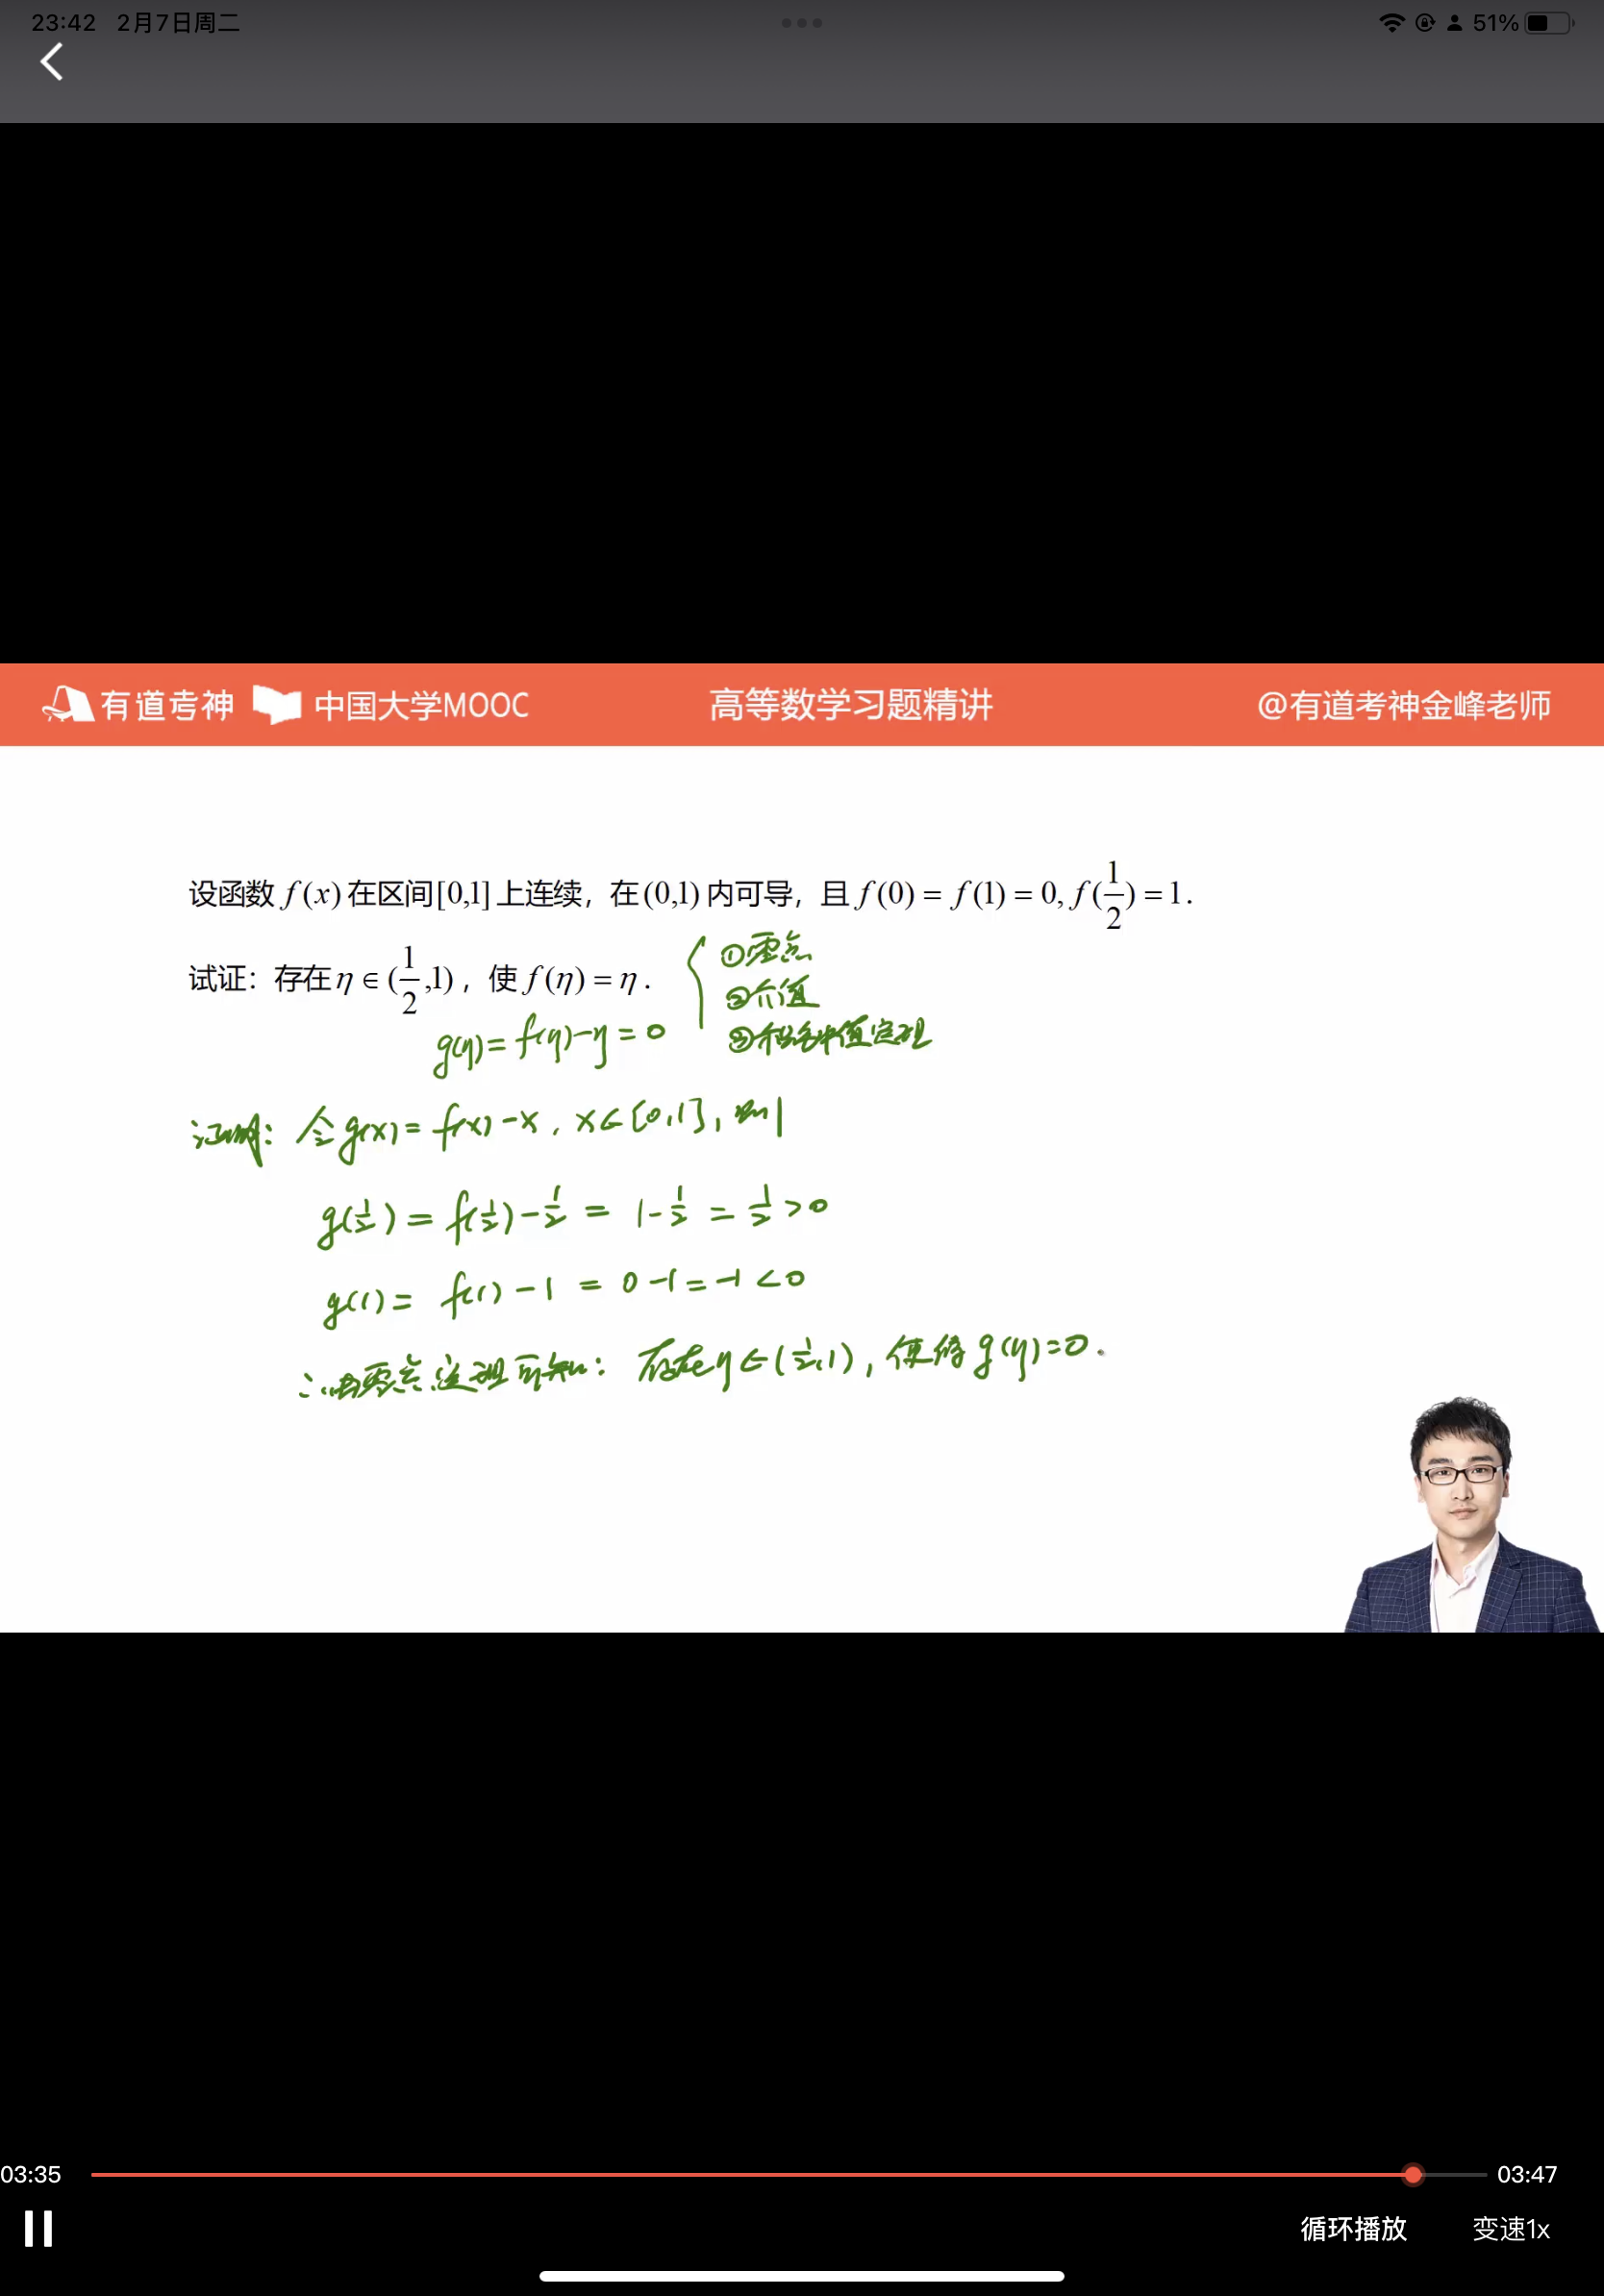 23:42 2月7日周二
51%
有道考神 中国大学MOOC 高等数学习题精讲 @有道考神金峰老师
设函数 f(x) 在区间[0,1]上连续，在(0,1)内可导，且 f(0) = f(1) = 0, f(1/2) = 1.
试证：存在 η ∈ (1/2,1)，使 f(η) = η.
①零点
②介值
③积分中值定理
g(η) = f(η) - η = 0
证明：令g(x) = f(x) - x, x∈[0,1], 则
g(1/2) = f(1/2) - 1/2 = 1 - 1/2 = 1/2 > 0
g(1) = f(1) - 1 = 0 - 1 = -1 < 0
∴由零点定理可知：存在η∈(1/2,1), 使得g(η)=0.
03:35
03:47
循环播放 变速1x